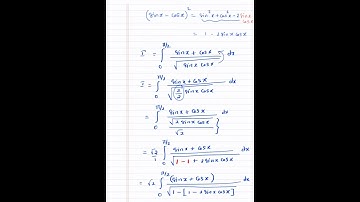 (sinx - cosx)² = sin²x + cos²x - 2 sinx cosx
= 1 - 2 sinx cosx
I = ∫₀^{π/2} (sinx + cosx) / √(sinx cosx) dx
I = ∫₀^{π/2} (sinx + cosx) / √((2/2) sinx cosx) dx
= ∫₀^{π/2} (sinx + cosx) / {√(2 sinx cosx) / √2} dx
= √2 ∫₀^{π/2} (sinx + cosx) / √(1 - 1 + 2 sinx cosx) dx
= √2 ∫₀^{π/2} (sinx + cosx) / √(1 - [1 - 2 sinx cosx]) dx